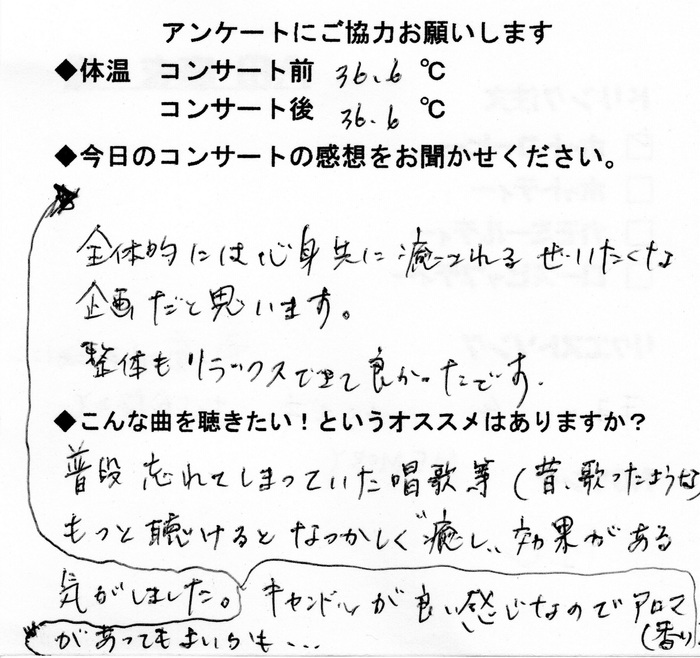 アンケートにご協力お願いします
◆体温 コンサート前 36.6 ℃
コンサート後 36.6 ℃
◆今日のコンサートの感想をお聞かせください。
全体的には心身共に癒されるぜいたくな
企画だと思います。
整体もリラックスできて良かったです.
◆こんな曲を聴きたい！というオススメはありますか？
普段忘れてしまっていた唱歌等(昔、歌ったような
もっと聴けるとなつかしく癒し、効果がある
気がしました。キャンドルが良い感じなのでアロマ
(香り)
があってもよいかも...